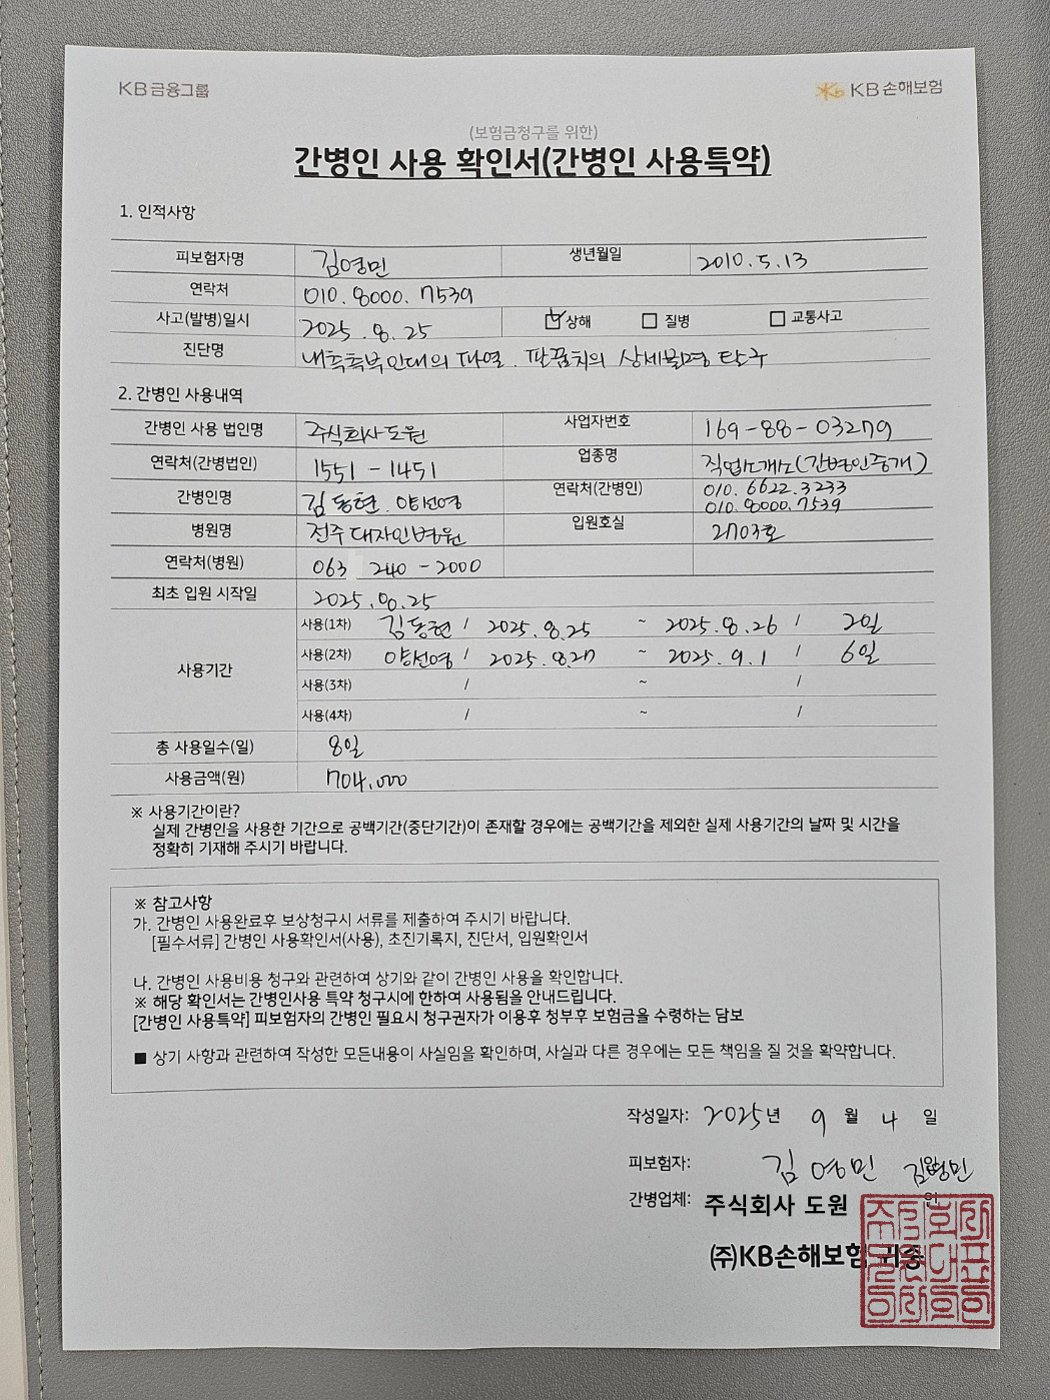 KB금융그룹
KB손해보험
(보험금청구를 위한)
간병인 사용 확인서(간병인 사용특약)
1. 인적사항
피보험자명 김영민 생년월일 2010.5.13
연락처 010.8000.7539
사고(발병)일시 2025.8.25 상해 질병 교통사고
진단명 내측측부인대의 파열. 팔꿈치의 상세불명 탈구
2. 간병인 사용내역
간병인 사용 법인명 주식회사도원 사업자번호 169-88-03279
연락처(간병법인) 1551-1451 업종명 직업소개소(간병인중개)
간병인명 김동현. 양선영 연락처(간병인) 010.6622.3233
010.8000.7539
병원명 전주대자인병원 입원호실 2703호
연락처(병원) 063 240-2000
최초 입원 시작일 2025.8.25
사용기간
사용(1차) 김동현 / 2025.8.25 ~ 2025.8.26 / 2일
사용(2차) 양선영 / 2025.8.27 ~ 2025.9.1 / 6일
사용(3차) / ~ /
사용(4차) / ~ /
총 사용일수(일) 8일
사용금액(원) 704,000
※ 사용기간이란?
실제 간병인을 사용한 기간으로 공백기간(중단기간)이 존재할 경우에는 공백기간을 제외한 실제 사용기간의 날짜 및 시간을
정확히 기재해 주시기 바랍니다.
※ 참고사항
가. 간병인 사용완료후 보상청구시 서류를 제출하여 주시기 바랍니다.
[필수서류] 간병인 사용확인서(사용), 초진기록지, 진단서, 입원확인서
나. 간병인 사용비용 청구와 관련하여 상기와 같이 간병인 사용을 확인합니다.
※ 해당 확인서는 간병인사용 특약 청구시에 한하여 사용됨을 안내드립니다.
[간병인 사용특약] 피보험자의 간병인 필요시 청구권자가 이용후 청부후 보험금을 수령하는 담보
■ 상기 사항과 관련하여 작성한 모든내용이 사실임을 확인하며, 사실과 다른 경우에는 모든 책임을 질 것을 확약합니다.
작성일자: 2025년 9월 4일
피보험자: 김영민 김영민
간병업체: 주식회사 도원 인
(주)KB손해보험 귀중